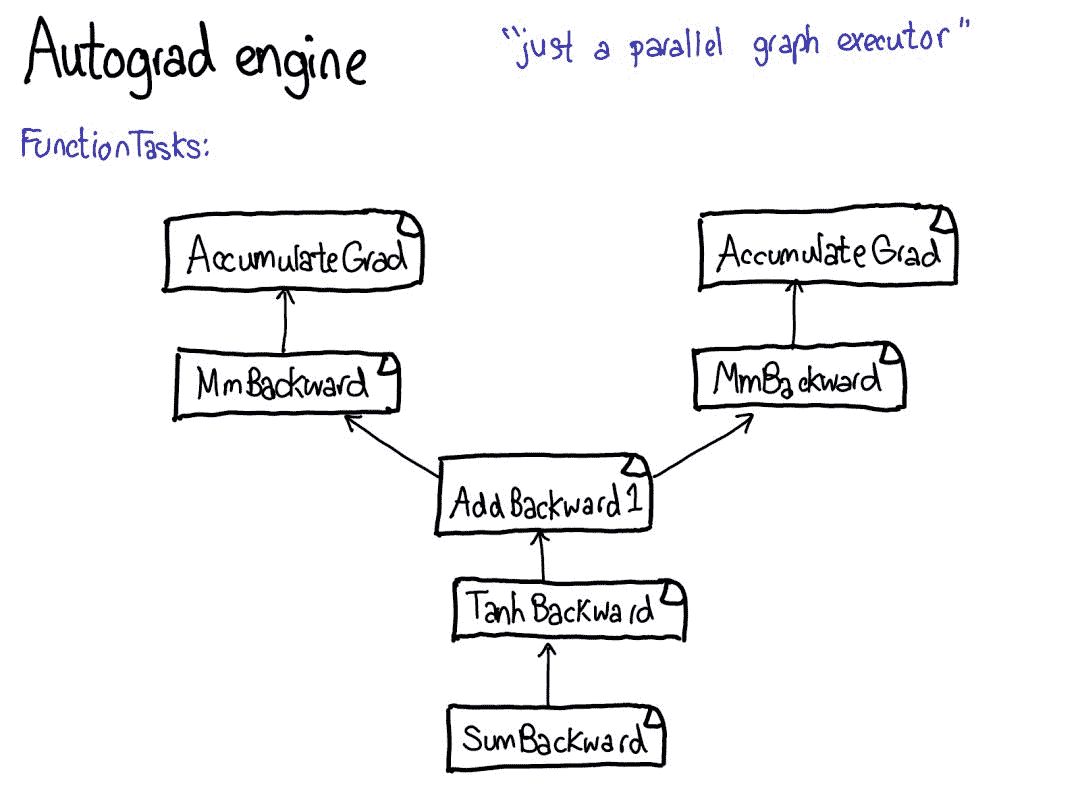 Autograd engine
"just a parallel graph executor"
FunctionTasks:
AccumulateGrad
AccumulateGrad
MmBackward
MmBackward
AddBackward1
TanhBackward
SumBackward